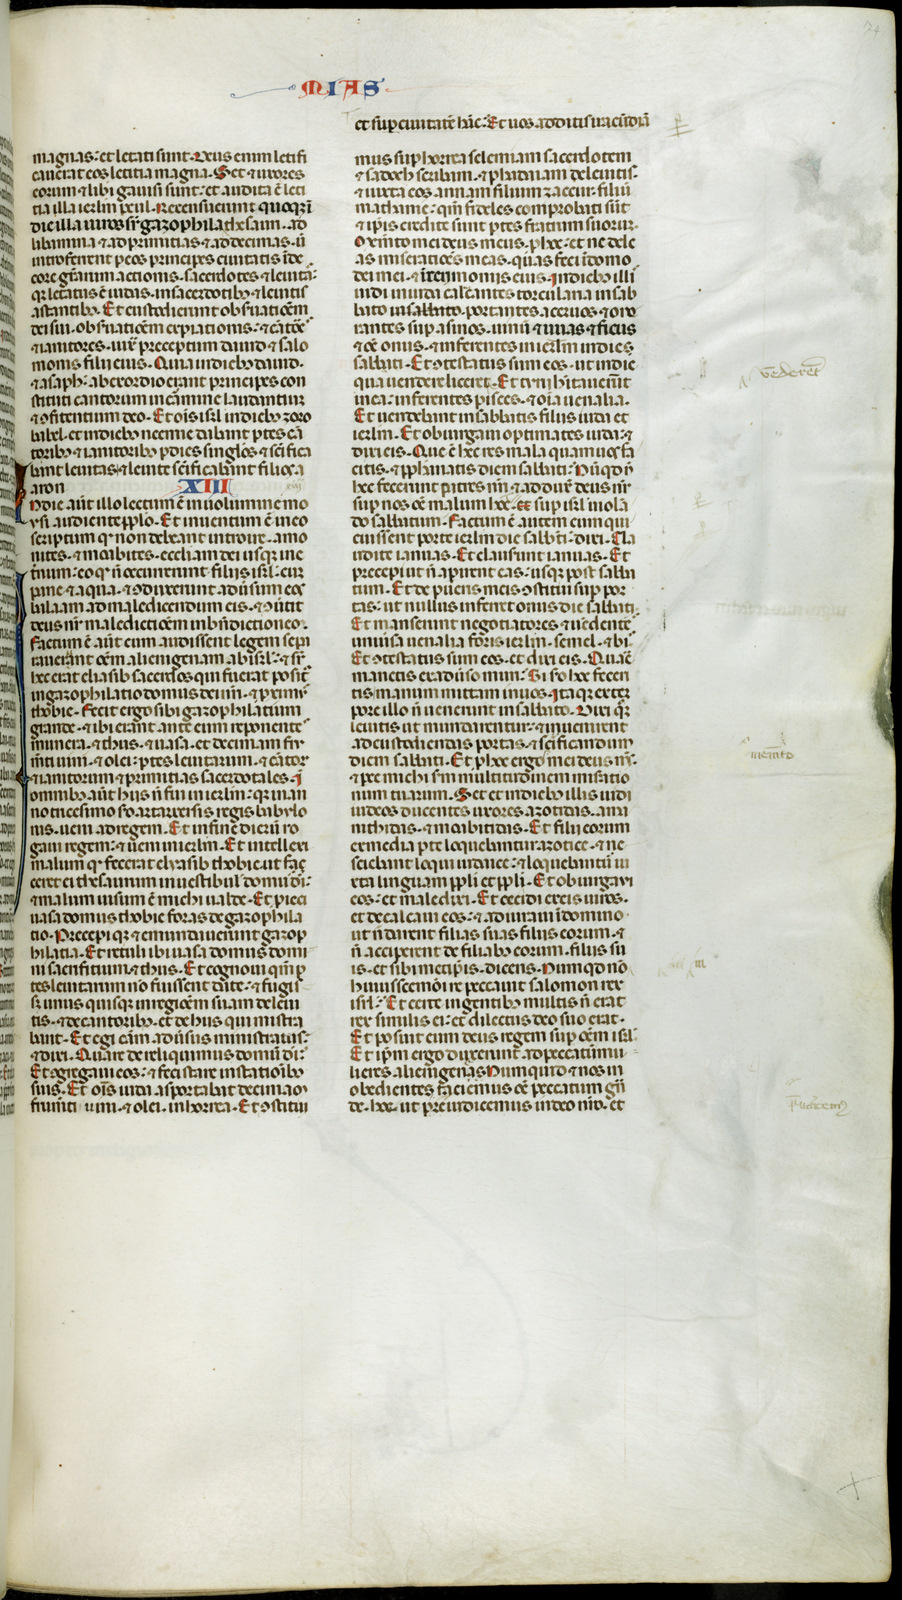 MIAS
et sup ciuitatē hāc. Et uos additis iracūdiā
magnas: et letati sunt. Deus enim letifi
cauerat eos letitia magna. Set et uxores
eorum & libi gauisi sunt: et audita ē leti
tia illa ierl'm p̄cul. Recensuerunt quoqз ī
die illa uiros sr̄ gazophilatꝛ thesauri. ad
libamina & ad primitias & ad decimas. ut
introferrent p eos principes ciuitatis ī de
core gr̄arum actionis. sacerdotes & leuitas:
qr letatus ē iudas. in sacerdotibз & leuitis
astantibз. Et custodierunt obs̄uatiōem
dei sui. obs̄uatiōem expiationis: & cātōres
& ianitores. iuxͣ preceptum dauid & salo
monis filii eius. Quia in diebз dauid.
& asaph: ab exordio erant principes con
stituti cantorum in carmine laudantium
& ɔfitentium deo. Et oīs isrl' in diebз zoro
babel. et in diebз neemie dabant ptes cā
toribз & ianitoribз p dies singlos & scīfica
bant leuitas & leuite scīficabant filios a
aron
XIII
In die aūt illo lectum ē in uolumine mo
ysi audiente pplo. Et inuentum ē in eo
scriptum qꝫ non debeant introire. amo
nites. & moabites. eccl'iam dei usqꝫ in e
t̄num: eo qꝫ n̄ occurrerunt filiis isrl' cum
pane & aqua. & ɔduxerunt aduersum eos
balaam ad maledicendum eis. & ɔuertit
deus nr̄ maledictiōem in bn̄dictionē.
Factum ē aūt cum audissent legem sepa
rauerunt oēm alienigenam ab isrl'. & sr̄
hec erat eliasib sacerdos qui fuerat posit9
in gazophilatio domus dei nr̄i. & proximus
thobie. Fecit ergo sibi gazophilatium
grande. & ibi erant ante eum reponentes
munera. & thus. & uasa. et decimam fru
menti uini. & olei. ptes leuitarum. & cātor
& ianitorum & primitias sacerdotales. I
omnibз aūt hiis n̄ fui in ierl'm: qr in an
no tricesimo sc̄do artaxersis regis babylo
nis. ueni ad regem. Et in fine dierū ro
gaui regem: & ueni in ierl'm. Et intellexi
malum qꝫ fecerat elyasib thobie. ut fac
ceret ei thesaurum in uestibul' domus dei:
& malum uisum ē michi ualde. Et pieci
uasa domus thobie foras de gazophila
tio. Precepi qꝫ & emundauerunt gazop
hilatia. Et retuli ibi uasa domus domi
ni sacrificium & thus. Et cognoui qm̄ p
tes leuitarum nō fuissent date: & fugis
sꝫ unus quisqꝫ in regiōem suam de leui
tis. & de cantoribз. et de his qui mistra
bant. Et egi cām aduersus ministratus:
& dixi. Quare dereliquimus domū dei:
Et ɔgregaui eos: & feci stare in stationibз
suis. Et ōis iuda asportabat decimas
frumenti uini. & olei. in horrea. Et ɔstitui
mus sup horrea selemiam sacerdotem
& sadoch scribam. & phadaiam de leuitis.
& iuxta eos annam filium zaccur. filii
mathanie: qm̄ fideles comprobati sūt
& ipis credite sunt ptes fratrum suorum.
Memento mei deus meus. p hoc: et ne dele
as miseratiōes meas. quas feci ī domo
dei mei. & ī cerimoniis eius. In diebз illis
uidi in iuda calcantes torcularia in sab
bato portantes aceruos. & one
rantes sup asinos. uinū & uuas & ficus
& oē onus. & inferentes in ierl'm in dies
sabbati. Et ɔtestatus sum eos. ut in die
qua uendere liceret. Et tyrii hītauerūt
in ea: inferentes pisces. & oīa uenalia.
Et uendebant in sabbatis filiis iuda et
ierl'm. Et obiurgaui optimates iuda: &
dixi eis. Que ē hec res mala quam uos fa
citis. & pphanatis diem sabbati: Nūqd n̄
hec fecerunt patres nr̄i & adduxꝫ deus nr̄
sup nos oē malum hoc. & sup isrl' uiola
do sabbatum. Factum ē autem cum qui
euissent porte ierl'm die sabbati: dixi. Cla
udite ianuas. Et clauserunt ianuas. Et
precepi ut n̄ aperirent eas: usqꝫ post sabba
tum. Et de pueris meis ɔstitui sup por
tas: ut nullus inferret onus die sabbati.
Et manserunt negotiatores & uēdentes
uniuersa uenalia foris ierl'm. semel. & bis.
Et ɔtestatus sum eos. et dixi eis. Quare
manetis ex aduerso muri: Si sc̄do hec feceri
tis manum mittam in uos. Itaqꝫ ex tem
pore illo n̄ uenerunt in sabbato. Dixi qꝫ
leuitis ut mundarentur: & uenirent
ad custodiendas portas. & scīficandum
diem sabbati. Et p hoc ergo mei deus ms̄.
& pce michi sm̄ multitudinem miseratio
num tuarum. Set et in diebз illis uidi
iudeos ducentes uxores azotidas. ama
nithidas. & moabitidas. Et filii eorum
ex media pte loquebantur azotice. & ne
sciebant loqui iudaice: & loquebantur iu
xta linguam ppli et ppli. Et obiurgaui
eos: et maledixi. Et cecidi ex eis uiros.
et decalcaui eos: & adiuraui ī domino
ut n̄ darent filias suas filiis eorum. &
n̄ acciperent de filiabз eorum. filiis su
is. et sibimetip̄is. dicens. Numqd nō
huiuscemōi re peccauit salomon rex
isrl': Et certe in gentibз multis n̄ erat
rex similis ei: et dilectus deo suo erat.
Et posuit eum deus regem sup oēm isrl'.
Et ip̄m ergo duxerunt ad peccatum mu
lieres alienigenas Numquid & nos in
obedientes faciemus oē peccatum gn̄
de. hoc. ut preuaricemus in deo nr̄o. et
uēderēt
memēto
p̄uaricem9